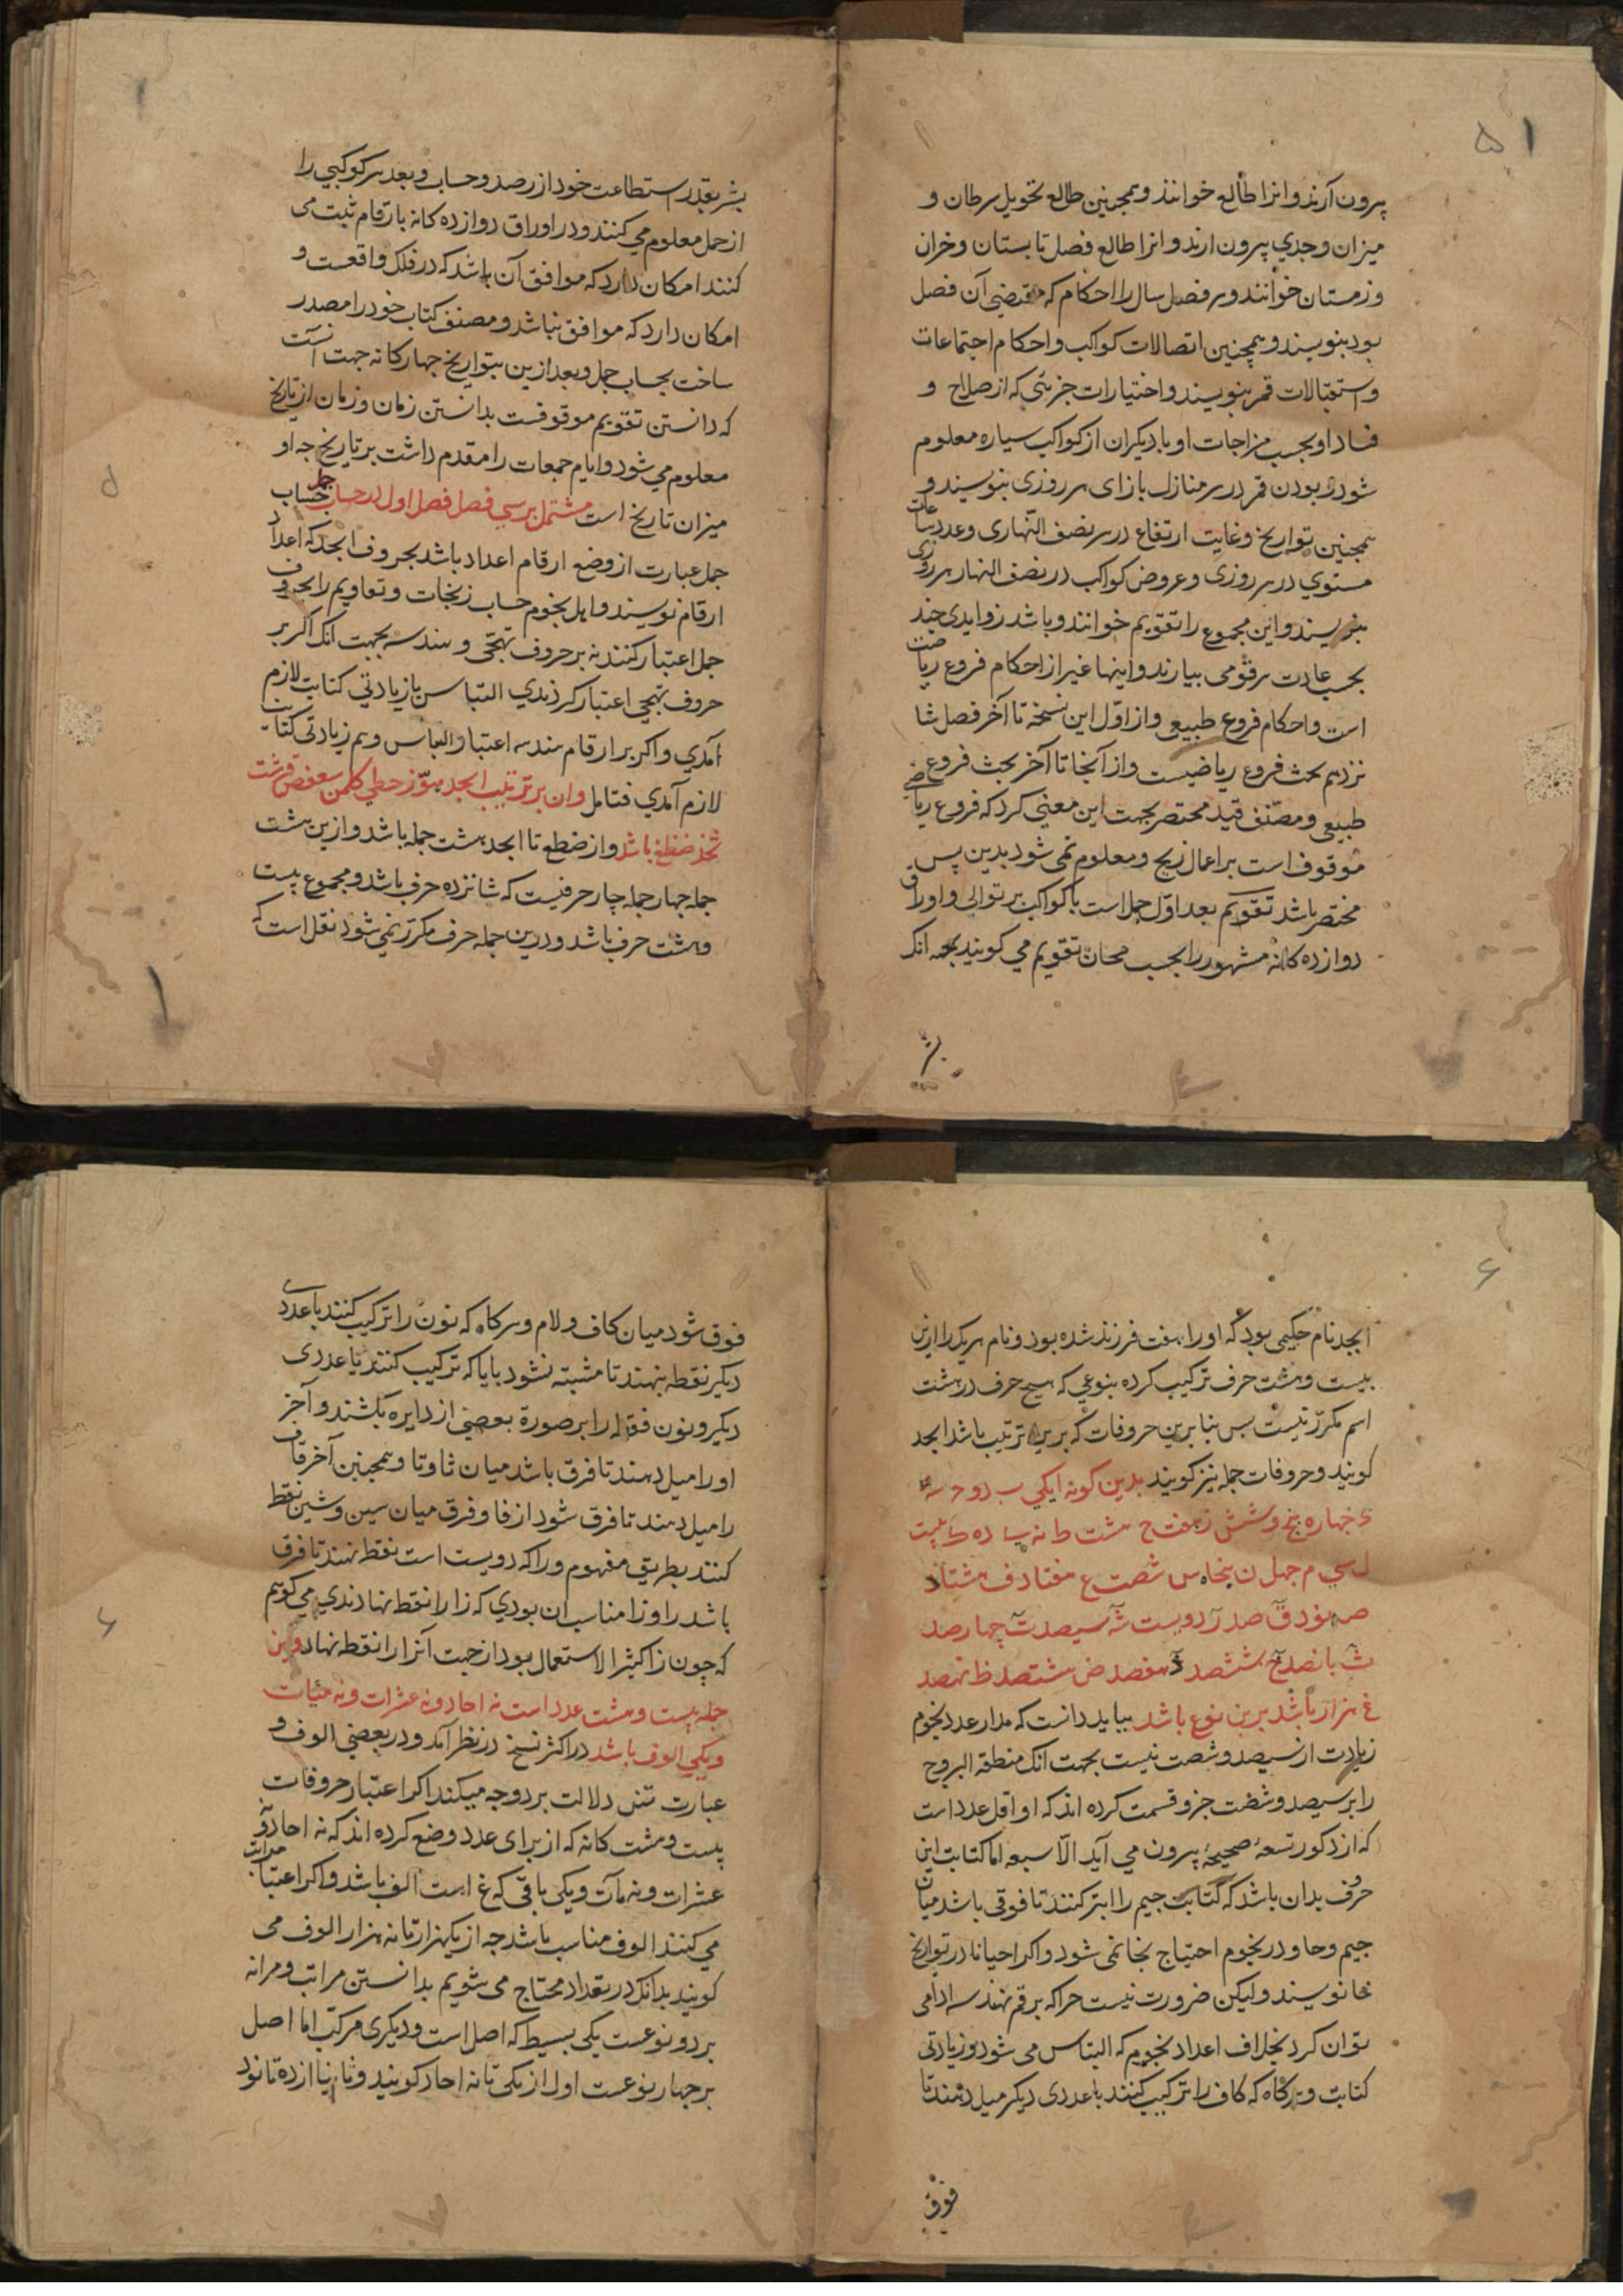 ۵۱
بیرون آرند و انرا طالع خوانند و همچنین طالع تحویل سرطان و
میزان و جدی بیرون ارند و انرا طالع فصل تابستان و خزان
و زمستان خوانند و هر فصل سال را احکام که مقتضی آن فصل
بود بنویسند و همچنین اتصالات کواکب و احکام اجتماعات
و استقبالات قمر بنویسند و اختیارات جزئی که از صلاح و
فساد او بحسب مزاجات او با دیکران از کواکب سیاره معلوم
شود و بودن قمر در هر منازل بازای هر روزی بنویسند و
همچنین تواریخ و غایت ارتفاع در هر نصف النهاری و عدد ساعات
مستوی در هر روزی و عروض کواکب در نصف النهار هر روزی
بنویسند و این مجموع را تقویم خوانند و باشد زوایدی چند
بحسب عادت هر قومی بیارند و اینها غیر از احکام فروع ریاضت
است و احکام فروع طبیعی و از اول این نسخه تا آخر فصل شا
نزدهم بحث فروع ریاضیست و از آنجا تا آخر بحث فروع
طبیعی و مصنف قید مختصر بجهت این معنی کرد که فروع ریاضی
موقوف است بر اعمال زیج و معلوم نمی شود بدین پس
مختصر باشد تقویم بعد اول حمل است با کواکب بر توالی و اوراق
دوازده کانه مشهور را بحسب مجاز تقویم می کویند بجهه انک
بشر
بشر بقدر استطاعت خود از رصد و حساب و بعد هر کوکبی را
از حمل معلوم می کنند و در اوراق دوازده کانه بارقام ثبت می
کنند امکان دارد که موافق آن باشد که در فلک واقعست و
امکان دارد که موافق نباشد و مصنف کتاب خود را مصدر
ساخت بحساب جمل و بعد ازین بتواریخ چهارکانه جهت آنست
که دانستن تقویم موقوفست بدانستن زمان و زمان از تاریخ
معلوم می شود و ایام جمعات را مقدم داشت بر تاریخ چه او
میزان تاریخ است مشتمل بر سی فصل فصل اول در حساب جمل حساب
جمل عبارت از وضع ارقام اعداد باشد بحروف ابجد که اعداد
ارقام نویسند و اهل نجوم حساب زیجات و تقاویم را بحروف
جمل اعتبار کنند نه بر حروف تهجی و هندسه بجهت انک اکر بر
حروف تهجی اعتبار کردندی التباس یا زیادتی کتابت لازم
آمدی و اکر بر ارقام هندسه اعتبار التباس و هم زیادتی کتابت
لازم آمدی فتامل وان بر ترتیب ابجد هوز حطی کلمن سعفص قرشت
ثخذ ضظغ باشد و از ضظغ تا ابجد هشت جمله باشد و ازین هشت
جمله چهار جمله چار حرفیست که شانزده حرف باشد و مجموع بیست
و هشت حرف باشد و درین جمله حرف مکرر نمی شود نقل است که
۶
ابجد نام حکیمی بود که او را هفت فرزند شده بود و نام هریک را ازین
بیست و هشت حرف ترکیب کرده بنوعی که هیچ حرف در هشت
اسم مکرر نیست بس بنا برین حروفات که برین ترتیب باشد ابجد
کویند و حروفات جمله نیز کویند بدین کونه ا یکی ب دو ح سه
د چهار ه پنج و شش ز هفت ح هشت ط نه ی ده ک بیست
ل سی م چهل ن پنجاه س شصت ع هفتاد ف هشتاد
ص نود ق صد ر دویست ش سیصد ت چهارصد
ث پانصد خ ششصد ذ هفصد ض هشتصد ظ نهصد
غ هزار باشد برین نوع باشد بباید دانست که مدار عدد نجوم
زیادت از سیصد و شصت نیست بجهت انک منطقه البروج
را بر سیصد و شصت جزو قسمت کرده اند که او اقل عدد است
که ازو کسور تسعه صحیحه بیرون می آید الا سبعه اما کتابت این
حرف بدان باشد که کتابت جیم را ابتر کنند تا فوقی باشد میان
جیم و حا و در نجوم احتیاج بخا نمی شود و اکر احیانا در تواریخ
خا نویسند و لیکن ضرورت نیست چرا که برقم هندسه ادا می
توان کرد بخلاف اعداد نجوم که التباس می شود و زیادتی
کتابت و هرکاه که کاف را ترکیب کنند با عددی دیکر میل دهند تا
فوق
فوق شود میان کاف و لام و هر کاه که نون را ترکیب کنند با عددی
دیکر نقطه بنهند تا مشبته نشود بایا که ترکیب کنند با عددی
دیکر و نون فقط را بر صورة بعضی از دایره بکشند و آخر
او را میل دهند تا فرق باشد میان ثا و تا و همچنین آخر قاف
را میل دهند تا فرق شود از فا و فرق میان سین و شین نقط
کنند بطریق مفهوم و را که دویست است نقط نهند تا فرق
باشد را و زا مناسب ان بودی که زا را نقط نهادندی می کویم
که چون زا کثیر الاستعمال بود از جهت آنرا را نقط نهاد و این
جمله بیست و هشت عدد است نه احاد و نه عشرات و نه مئیات
و یکی الوف باشد در اکثر نسخ در نظر آمد و در بعضی الوف و
عبارت متن دلالت بر دو وجه میکند اکر اعتبار حروفات
بیست و هشت کانه که از برای عدد وضع کرده اند که نه احاد و
عشرات و نه مآت و یکی باقی که غ است الف باشد و اکر اعتبار مراتب
می کنند الوف مناسب باشد چه از یکهزار تا نه هزار الوف می
کویند بدانک در تعداد محتاج می شویم بدانستن مراتب و مراتبه
بر دو نوعست یکی بسیط که اصل است و دیکری مرکب اما اصل
بر چهار نوعست اول از یکی تا نه احاد کویند و ثانیا از ده تا نود
۶